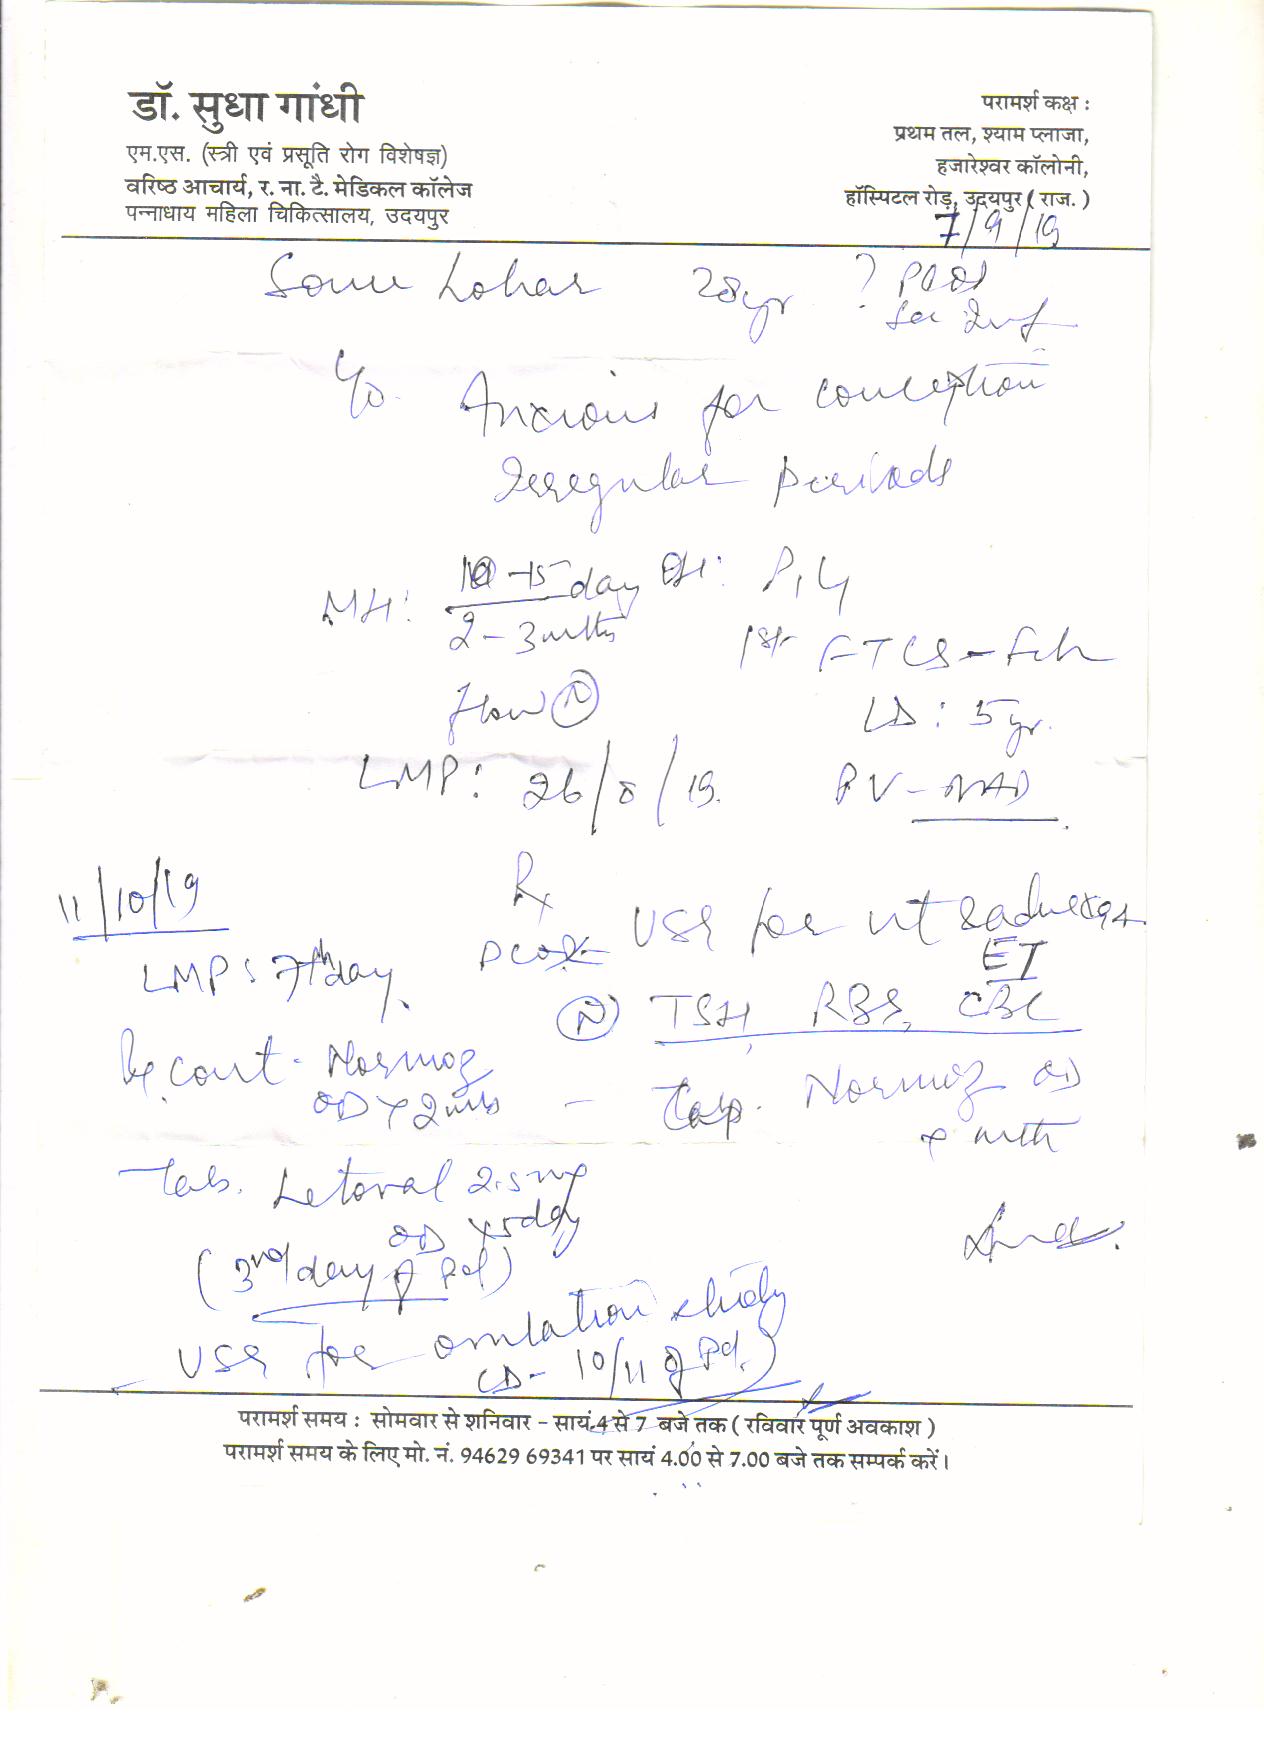 डॉ. सुधा गांधी
एम.एस. (स्त्री एवं प्रसूति रोग विशेषज्ञ)
वरिष्ठ आचार्य, र. ना. टै. मेडिकल कॉलेज
पन्नाधाय महिला चिकित्सालय, उदयपुर
परामर्श कक्ष :
प्रथम तल, श्याम प्लाजा,
हजारेश्वर कॉलोनी,
हॉस्पिटल रोड़, उदयपुर ( राज. )
7/9/19
Sonu Lohar 28yr ? PCOS
Sec Inf
C/o. Anxious for conception
Irregular periods
MH: 10-15 day
2-3 mths
flow (N)
OH: P1L1
1st FTCS - Fch
LD: 5yr.
LMP: 26/8/19. PV - NAD
Rx
USG for ut & adnexa
PCOS ET
(N) TSH, RBS, CBC
- Tab. Normoz OD
x mth
11/10/19
LMP: 7th day.
Rx cont - Normoz
OD x 2 mths
Tab. Letoval 2.5mg
OD x 5 day
(3rd day of Pd)
USG for ovulation study
CD - 10/11 of Pd.)
परामर्श समय : सोमवार से शनिवार - सायं.4 से 7 बजे तक ( रविवार पूर्ण अवकाश )
परामर्श समय के लिए मो. नं. 94629 69341 पर सायं 4.00 से 7.00 बजे तक सम्पर्क करें।